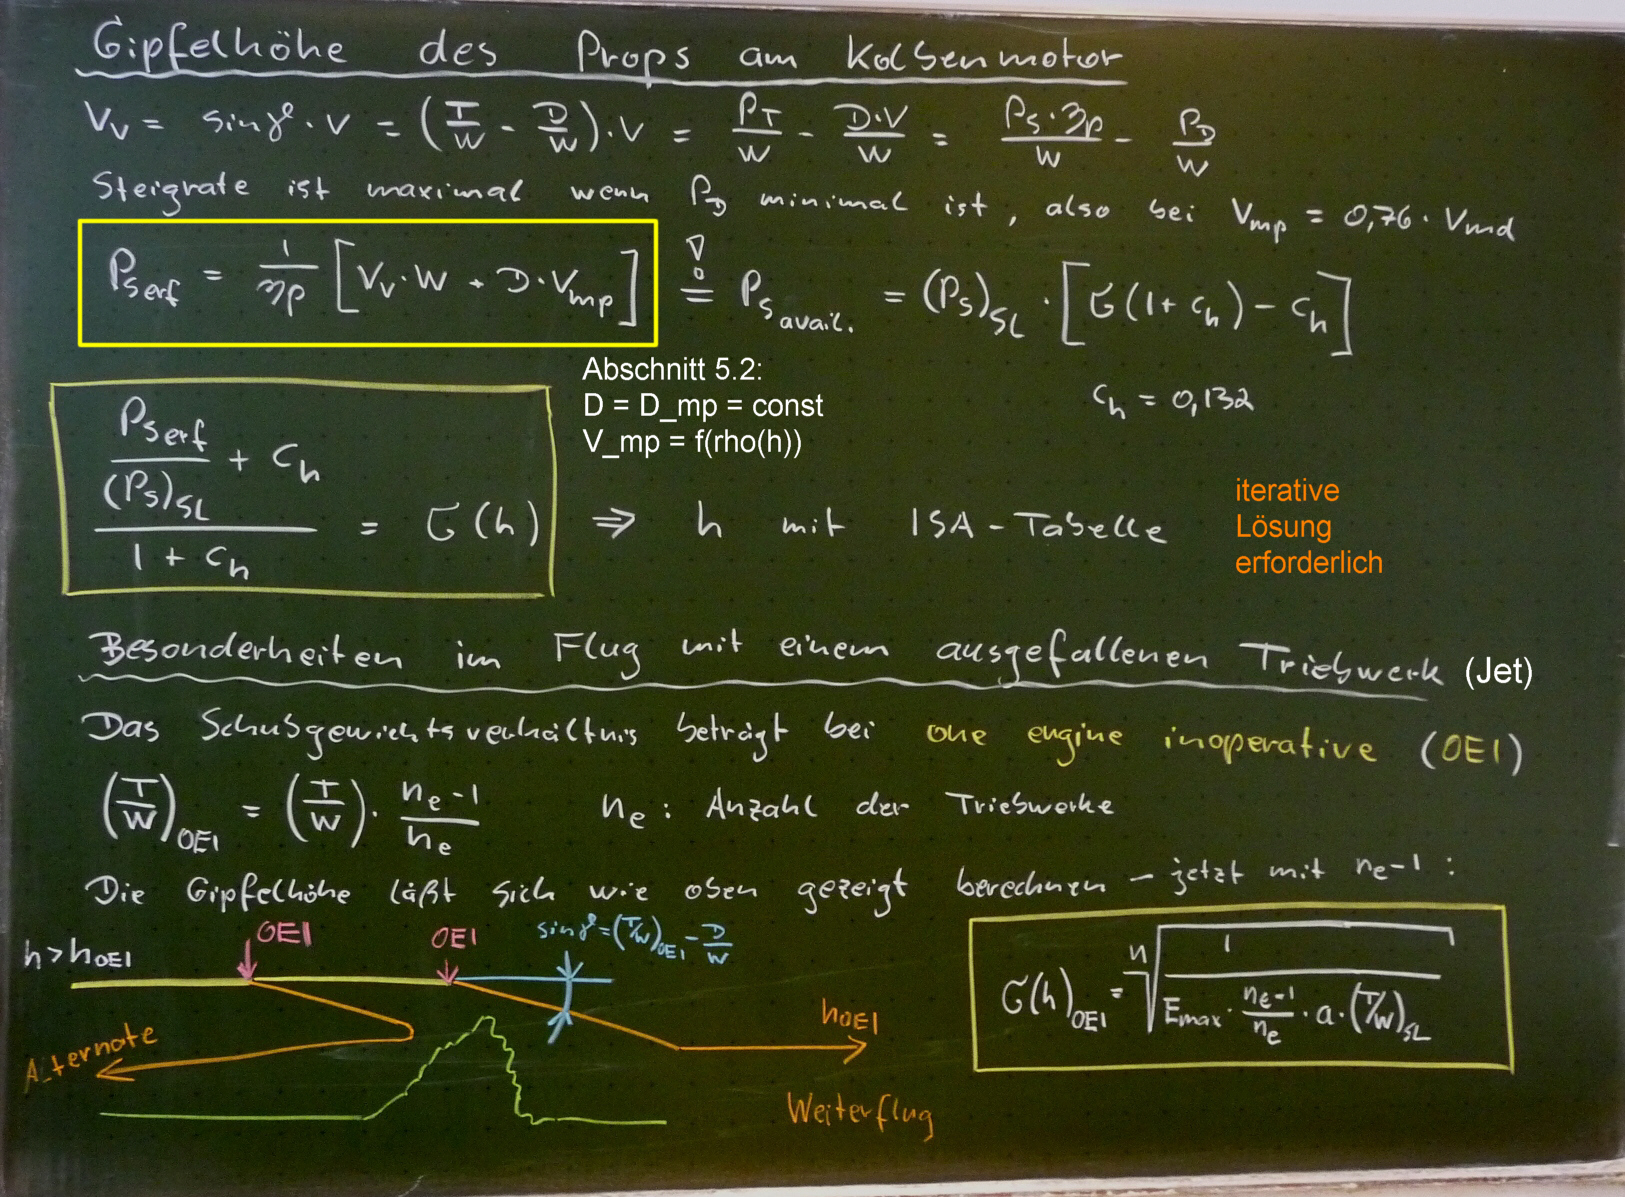 Gipfelhöhe des Props am Kolbenmotor
V_V = sin γ · V = (T/W - D/W) · V = P_T/W - D·V/W = P_S·η_P/W - P_D/W
Steigrate ist maximal wenn P_D minimal ist, also bei V_mp = 0,76 · V_md
P_S erf = 1/η_P [V_V · W + D · V_mp] =! P_S avail. = (P_S)_SL · [σ(1 + c_h) - c_h]
Abschnitt 5.2:
D = D_mp = const
V_mp = f(rho(h))
c_h = 0,132
(P_S erf/(P_S)_SL + c_h)/(1 + c_h) = σ(h) ⇒ h mit ISA-Tabelle
iterative
Lösung
erforderlich
Besonderheiten im Flug mit einem ausgefallenen Triebwerk (Jet)
Das Schubgewichtsverhältnis beträgt bei one engine inoperative (OEI)
(T/W)_OEI = (T/W) · (n_e - 1)/n_e n_e : Anzahl der Triebwerke
Die Gipfelhöhe läßt sich wie oben gezeigt berechnen – jetzt mit n_e-1 :
h > h_OEI
OEI
OEI
sin γ = (T/W)_OEI - D/W
σ(h)_OEI = ⁿ√(1/(E_max · (n_e-1)/n_e · a · (T/W)_SL))
h_OEI
Alternate
Weiterflug